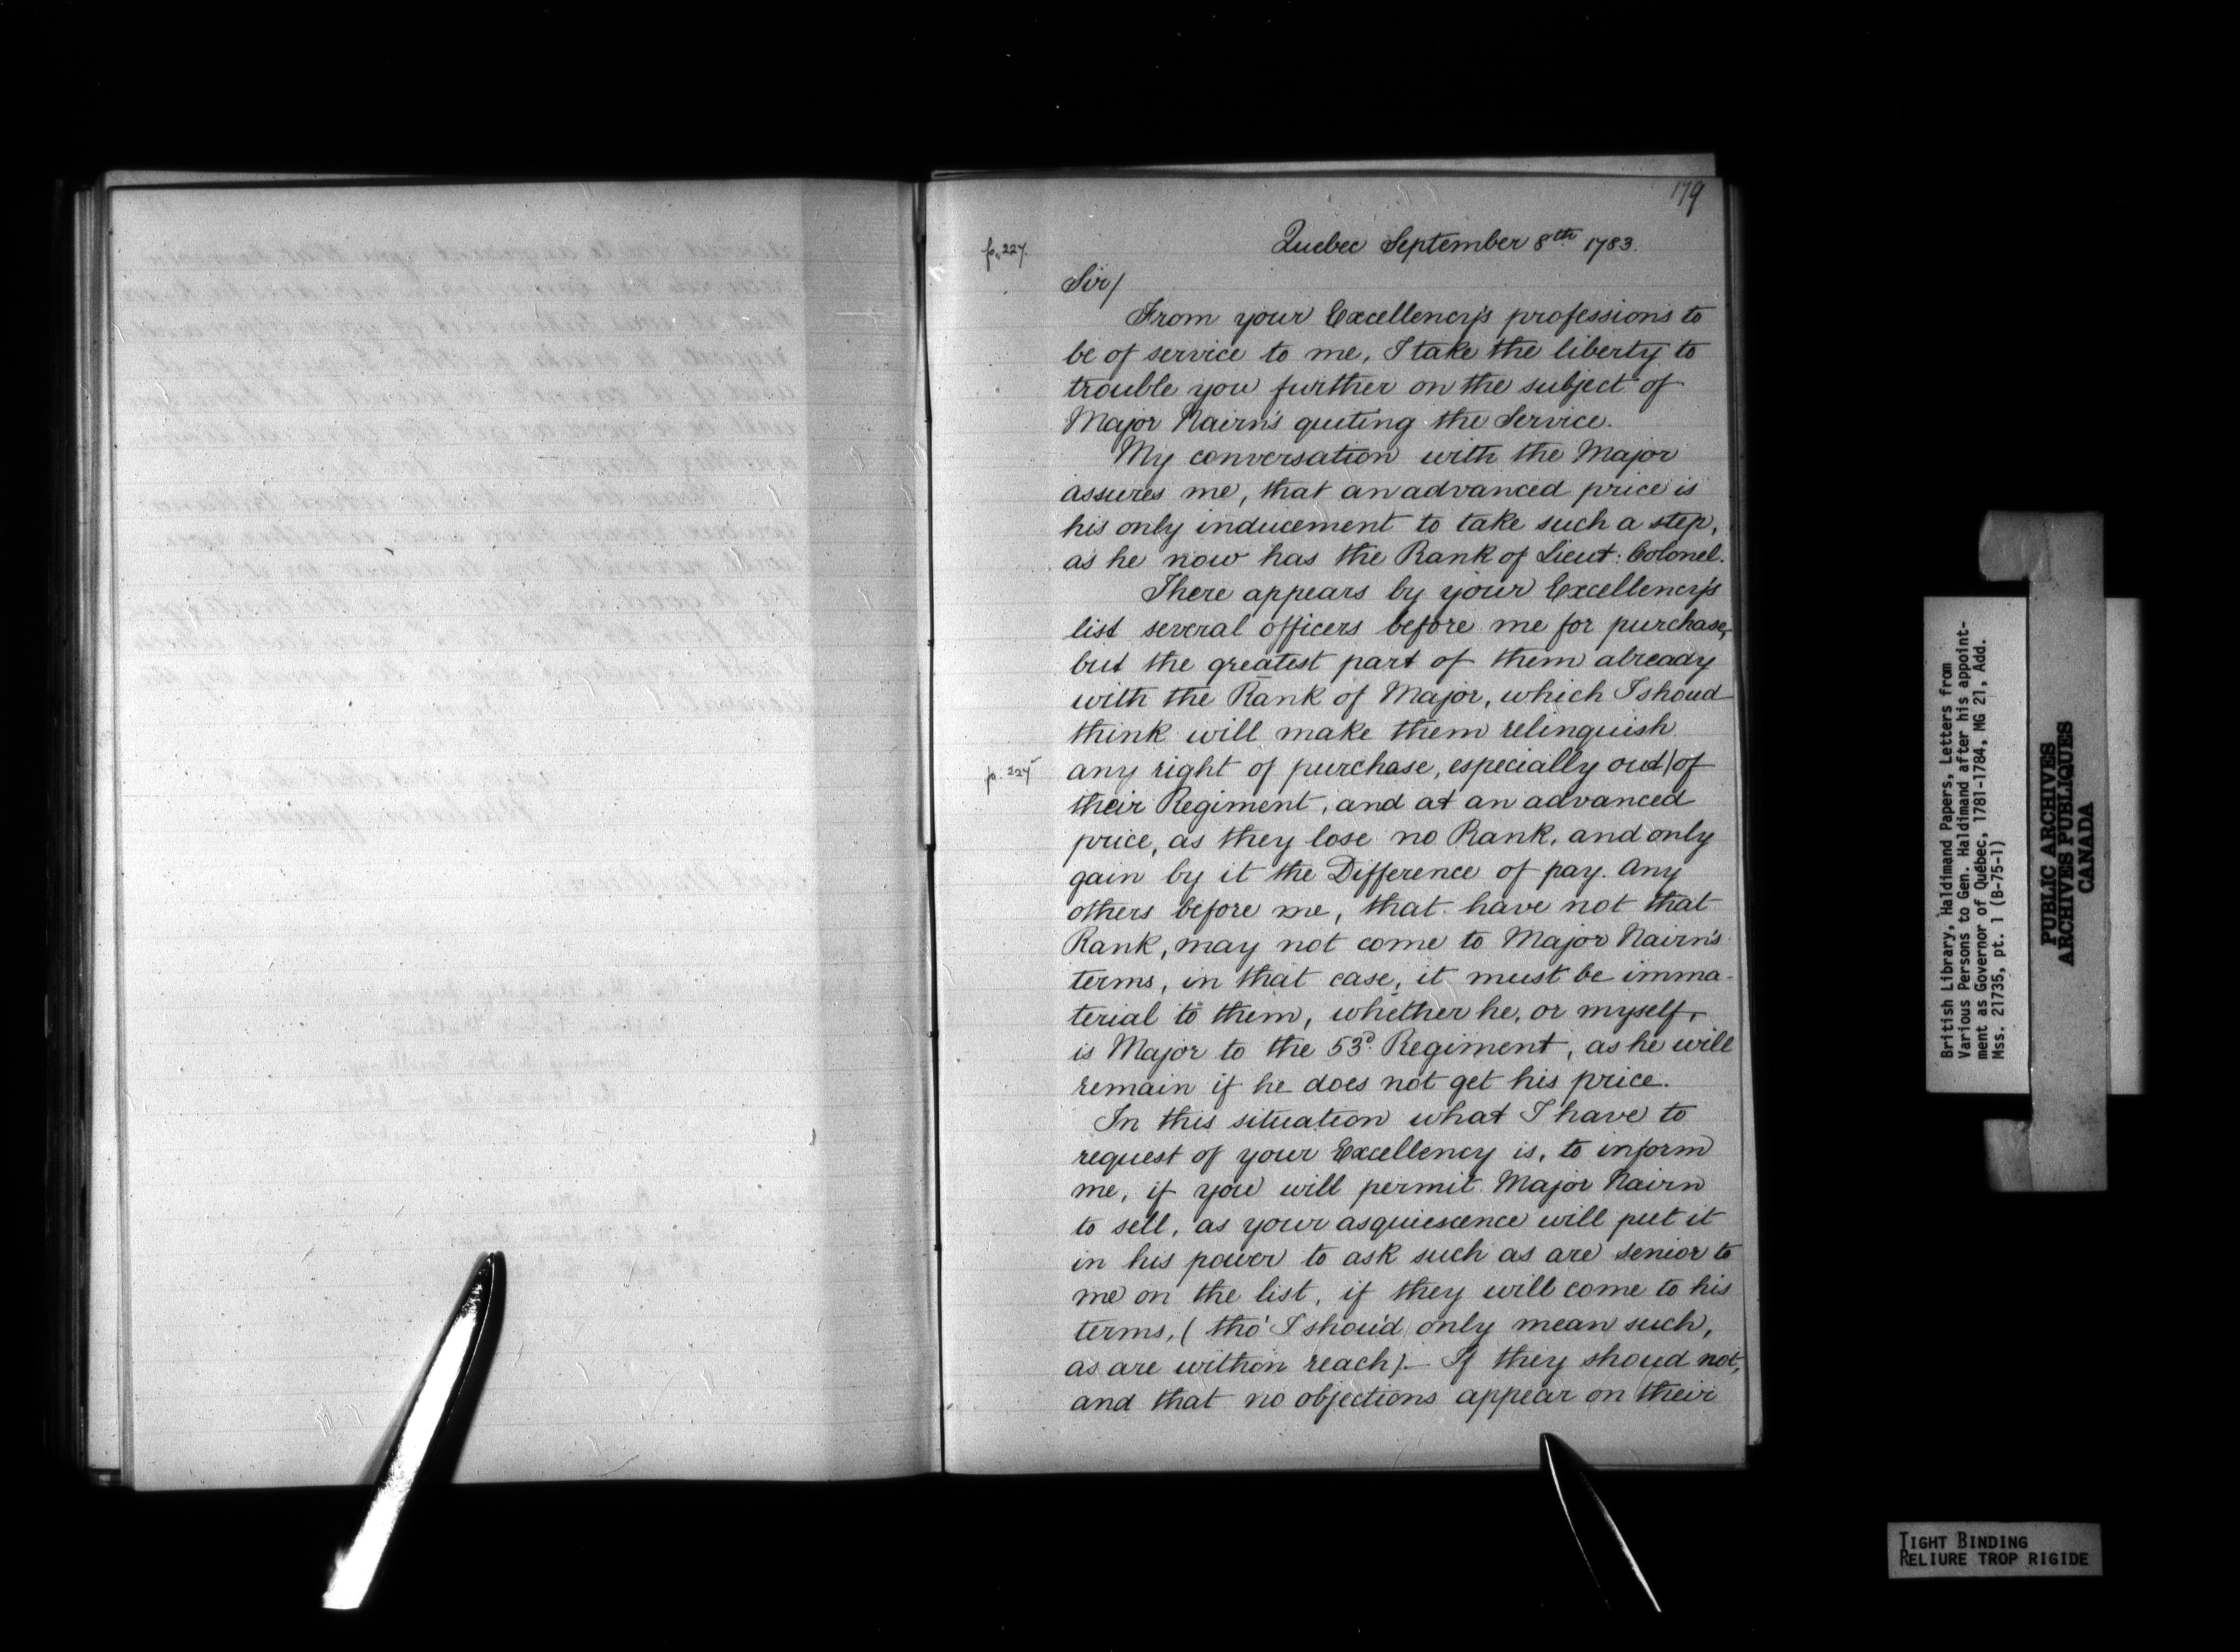 179
p. 227.
Quebec September 8th 1783.
Sir/
From your Excellency's professions to
be of service to me, I take the liberty to
trouble you further on the subject of
Major Nairn's quiting the Service.
My conversation with the Major
assures me, that an advanced price is
his only inducement to take such a step,
as he now has the Rank of Lieut: Colonel.
There appears by your Excellency's
list several officers before me for purchase,
but the greatest part of them already
with the Rank of Major, which I shoud
think will make them relinquish
any right of purchase, especially out/of
their Regiment, and at an advanced
price, as they lose no Rank, and only
gain by it the Difference of pay. Any
others before me, that have not that
Rank, may not come to Major Nairn's
terms, in that case, it must be imma-
terial to them, whether he, or myself,
is Major to the 53d. Regiment, as he will
remain if he does not get his price.
In this situation what I have to
request of your Excellency is, to inform
me, if you will permit Major Nairn
to sell, as your asquiescence will put it
in his power to ask such as are senior to
me on the list, if they will come to his
terms, (tho' I shou'd only mean such,
as are within reach).— If they shoud not,
and that no objections appear on their
British Library, Haldimand Papers, Letters from
Various Persons to Gen. Haldimand after his appoint-
ment as Governor of Québec, 1781-1784, MG 21, Add.
Mss. 21735, pt. 1 (B-75-1)
PUBLIC ARCHIVES
ARCHIVES PUBLIQUES
CANADA
TIGHT BINDING
RELIURE TROP RIGIDE